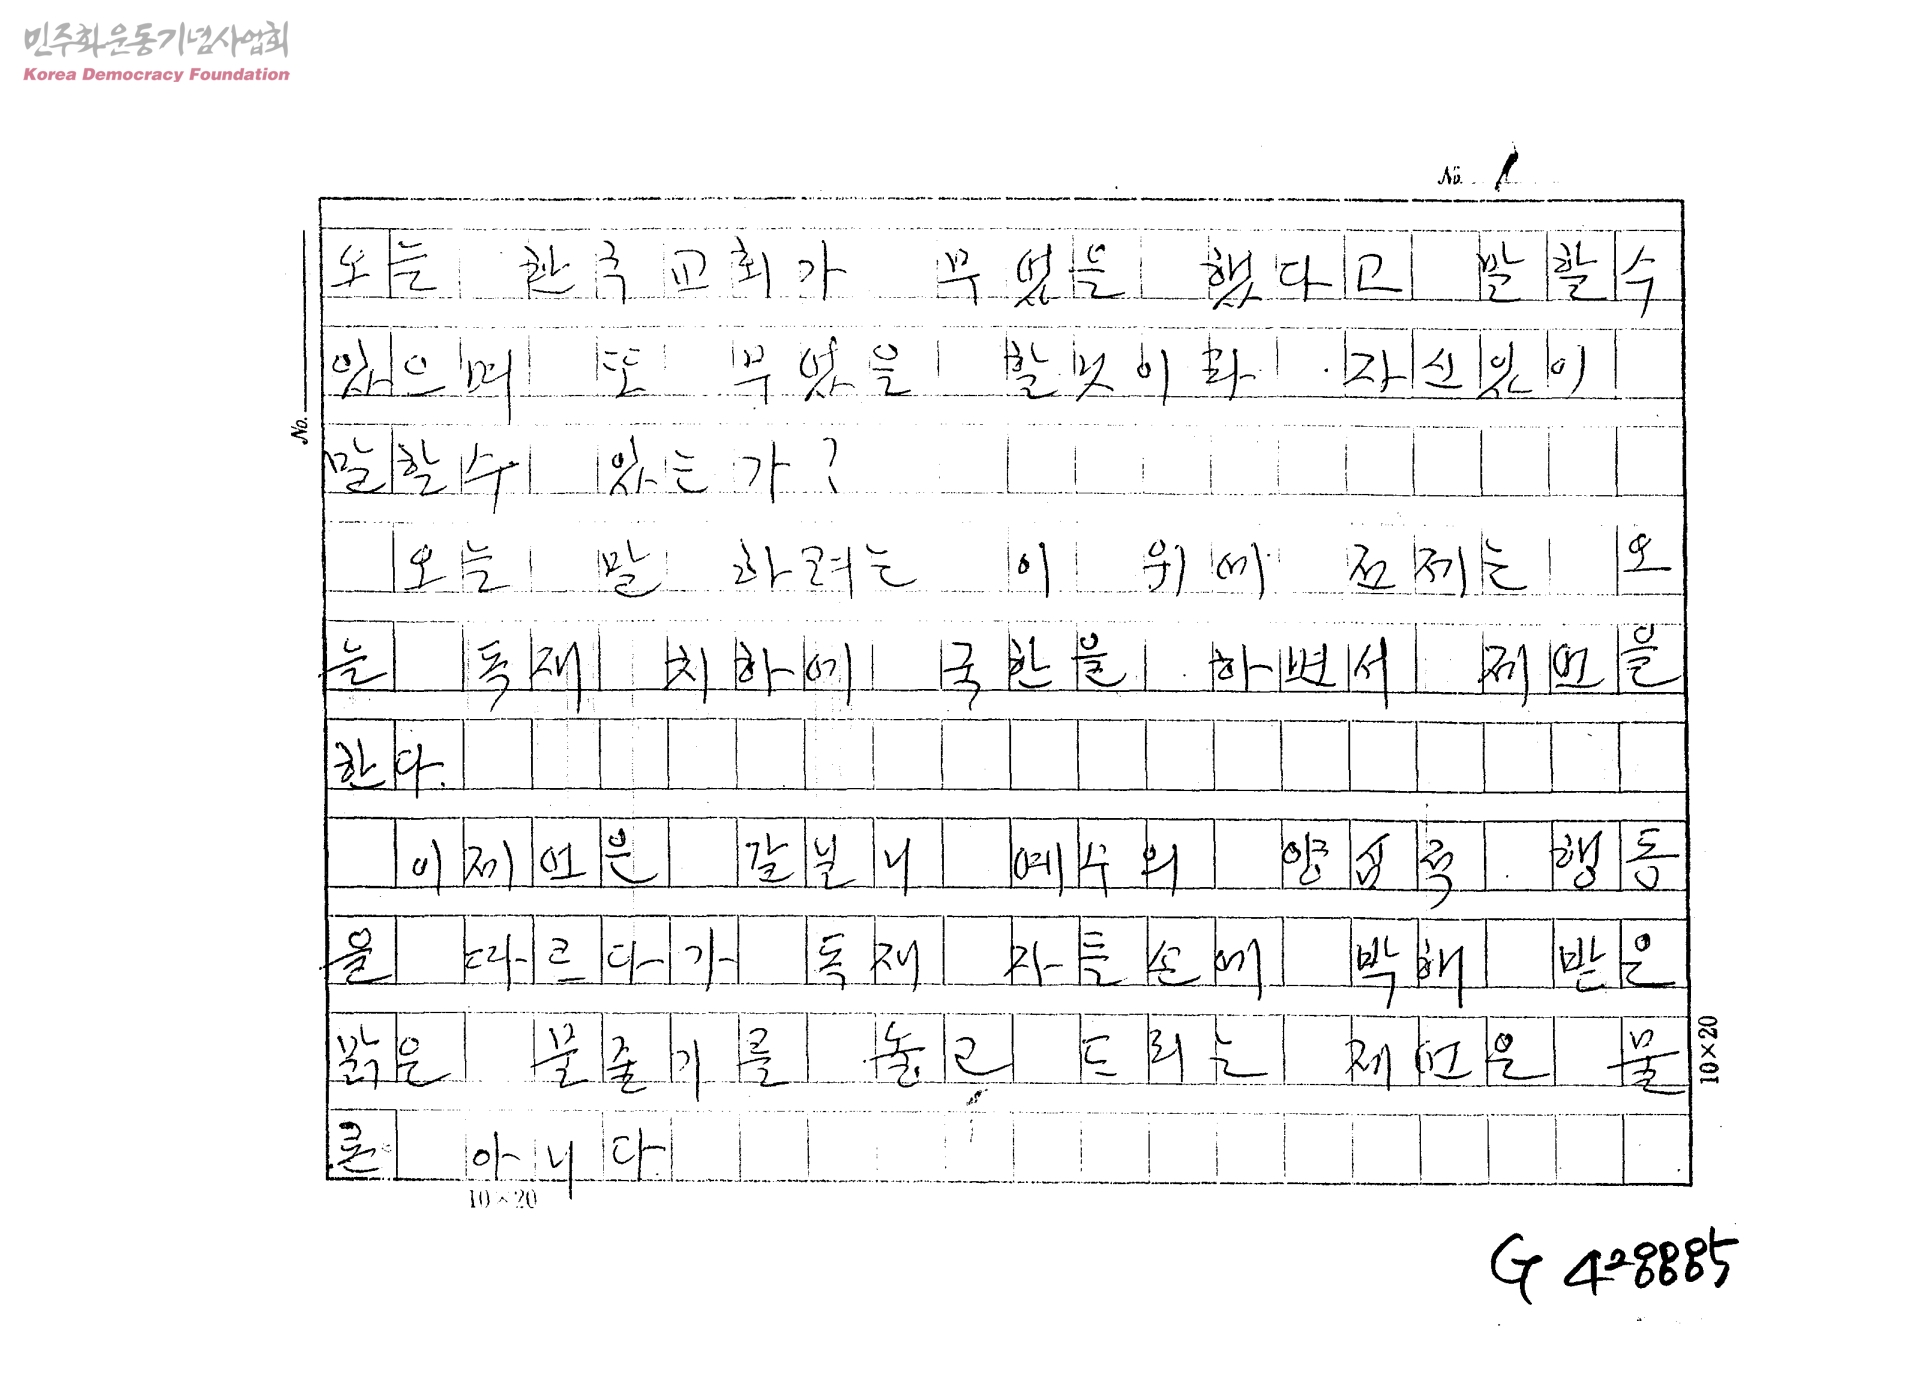 민주화운동기념사업회
Korea Democracy Foundation
No. 1
오늘 한국교회가 무엇을 했다고 말할수
있으며 또 무엇을 할것이라 자신있이
말할수 있는가?
오늘 말 하려는 이 위에 전제는 오
늘 독재 치하에 국한을 하면서 제언을
한다.
이제언은 갈닐니 예수의 양심적 행동
을 따르다가 독재 자들손에 박해 받은
밝은 물줄기를 놓고 드리는 제언은 물
론 아니다.
No.
10×20
10×20
G 428885